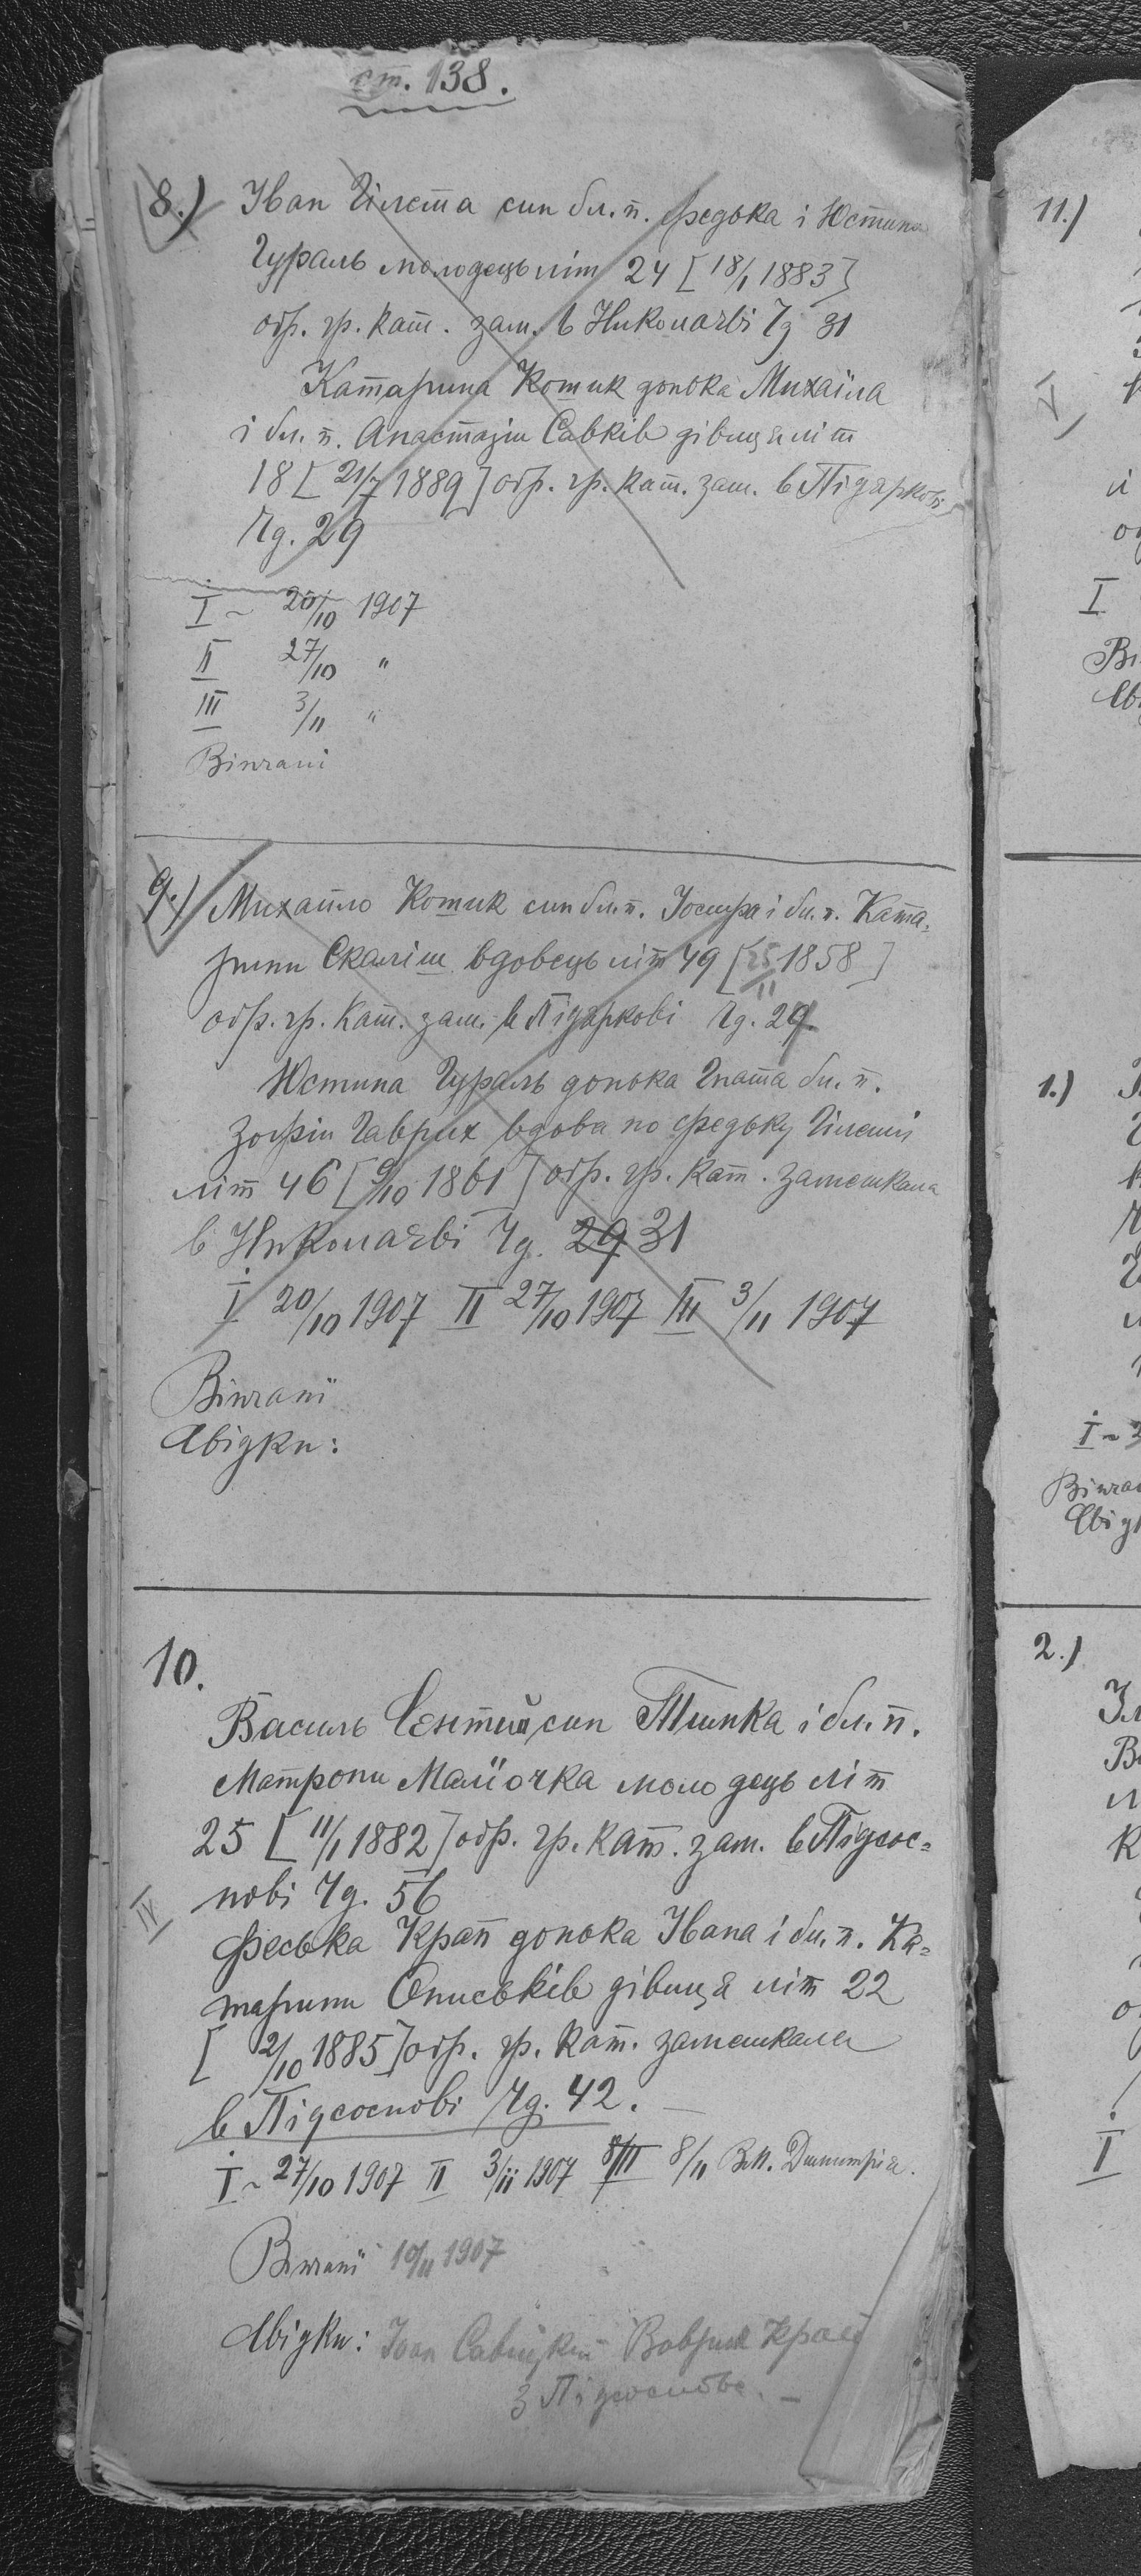 ст. 138.
8.) Іван Гілета син бл. п. Федька і Юстини
Гураль молодець літ 24 [18/1 1883]
обр. гр. кат. зам. в Николаєві Чд 31
Катарина Котик донька Михаіла
і бл. п. Анастазіи Савків дівиця літ
18 [21/7 1889] обр. гр. кат. зам. в Підяркові
Чд. 29
I ~ 20/10 1907
II 27/10 "
III 3/11 "
Вінчані
9.) Михайло Котик син бл. п. Йосифа і бл. п. Ката-
рини Скаліш вдовець літ 49 [25/11 1858]
обр. гр. кат. зам. в Підяркові Чд. 29
Юстина Гураль донька Гната бл. п.
Зофіи Гаврих вдова по Федьку Гілеті
літ 46 [9/10 1861] обр. гр. кат. замешкала
в Николаєві Чд. 29 31
I 20/10 1907 II 27/10 1907 III 3/11 1907
Вінчані
Свідки:
10.
Василь син Тимка і бл. п.
Матрони Малїочка молодець літ
25 [11/1 1882] обр. гр. кат. зам. в Підсос-
нові Чд. 56
IV
Феська Крап донька Івана і бл. п. Ка-
тарини Ониськів дівиця літ 22
[2/10 1885] обр. гр. кат. замешкала
в Підсоснові Чд. 42. —
I ~ 27/10 1907 II 3/11 1907 III 8/11 Вл. Димитрія.
Вінчані 10/11 1907
Свідки: Іван
з Підсоснова. —
11.)
V
I
1.)
I ~
2.)
I